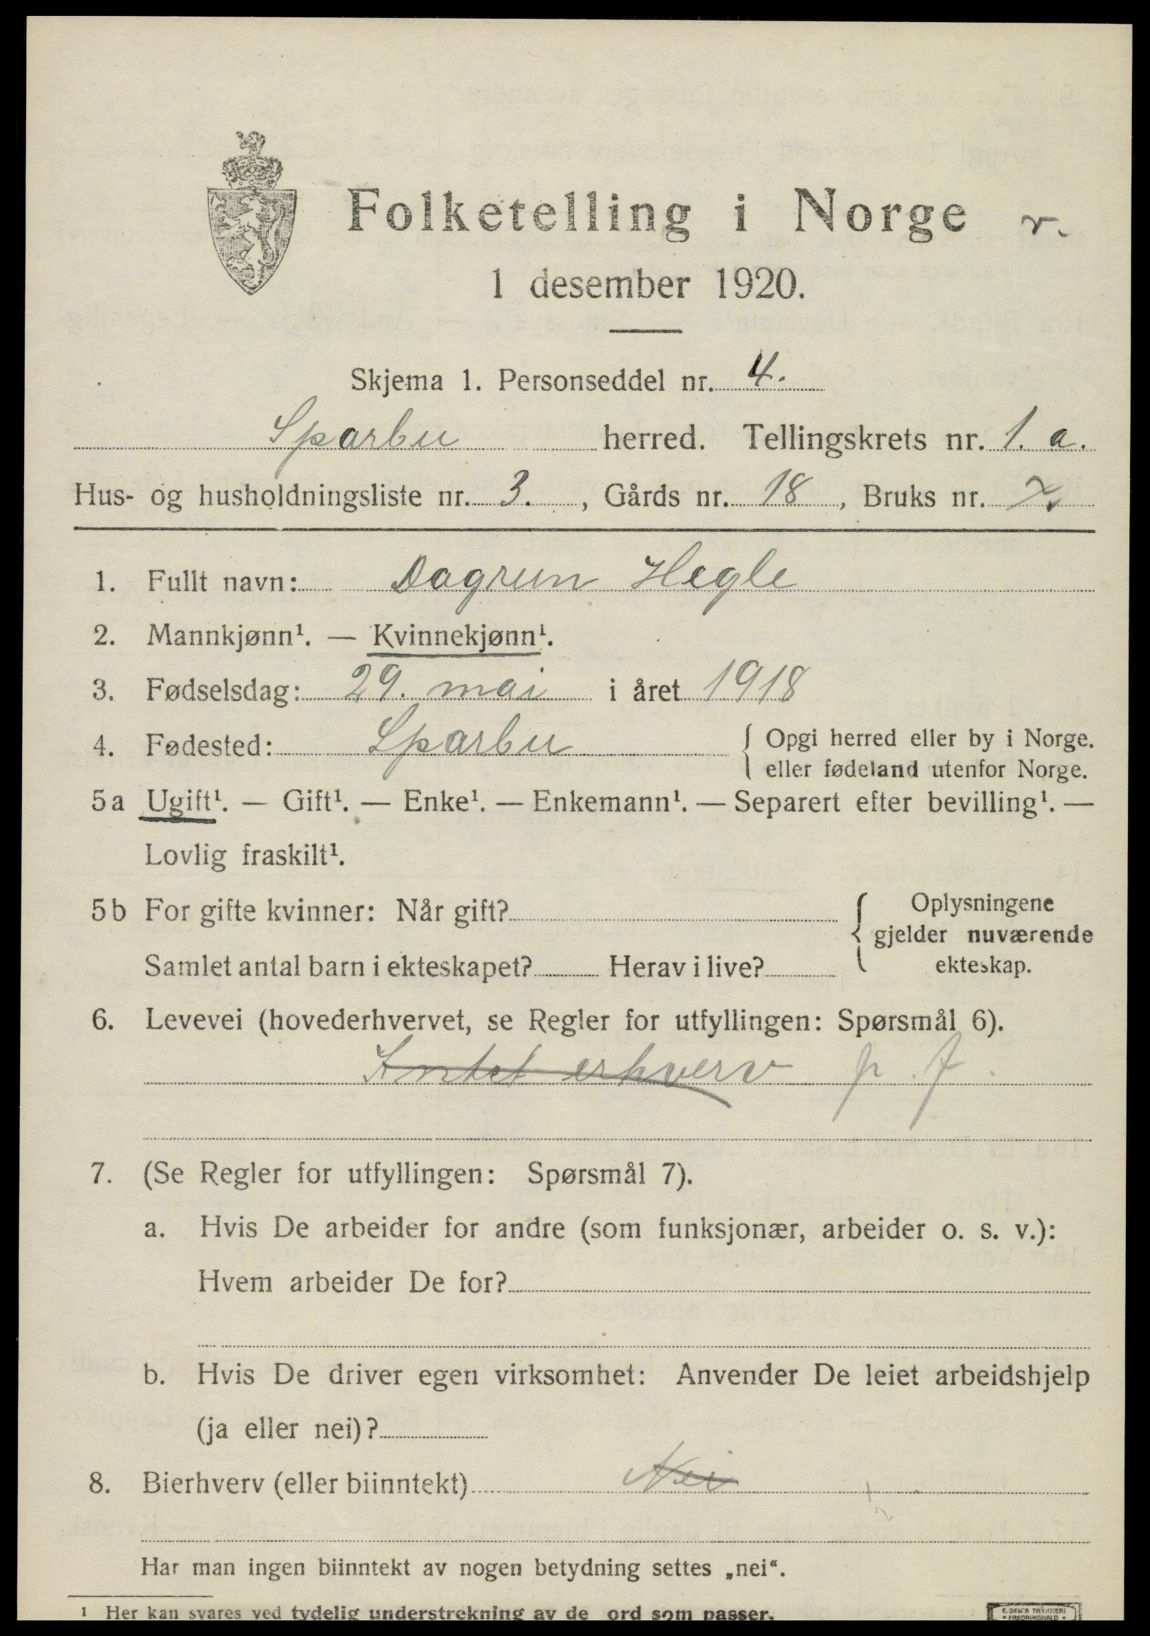 Folketelling i Norge r.
1 desember 1920.
Skjema 1. Personseddel nr. 4.
Sparbu herred. Tellingskrets nr. 1. a.
Hus- og husholdningsliste nr. 3. , Gårds nr. 18 , Bruks nr. 7.
1. Fullt navn: Dagrun Hegle
2. Mannkjønn¹. — Kvinnekjønn¹.
3. Fødselsdag: 29. mai i året 1918
4. Fødested: Sparbu { Opgi herred eller by i Norge.
eller fødeland utenfor Norge.
5a Ugift¹. — Gift¹. — Enke¹. — Enkemann¹. — Separert efter bevilling¹. —
Lovlig fraskilt¹.
5b For gifte kvinner: Når gift? { Oplysningene
gjelder nuværende
Samlet antal barn i ekteskapet? Herav i live? ekteskap.
6. Levevei (hovederhvervet, se Regler for utfyllingen: Spørsmål 6).
Intet erhverv p. f.
7. (Se Regler for utfyllingen: Spørsmål 7).
a. Hvis De arbeider for andre (som funksjonær, arbeider o. s. v.):
Hvem arbeider De for?
b. Hvis De driver egen virksomhet: Anvender De leiet arbeidshjelp
(ja eller nei)?
8. Bierhverv (eller biinntekt) Nei
Har man ingen biinntekt av nogen betydning settes „nei“.
¹ Her kan svares ved tydelig understrekning av de ord som passer.